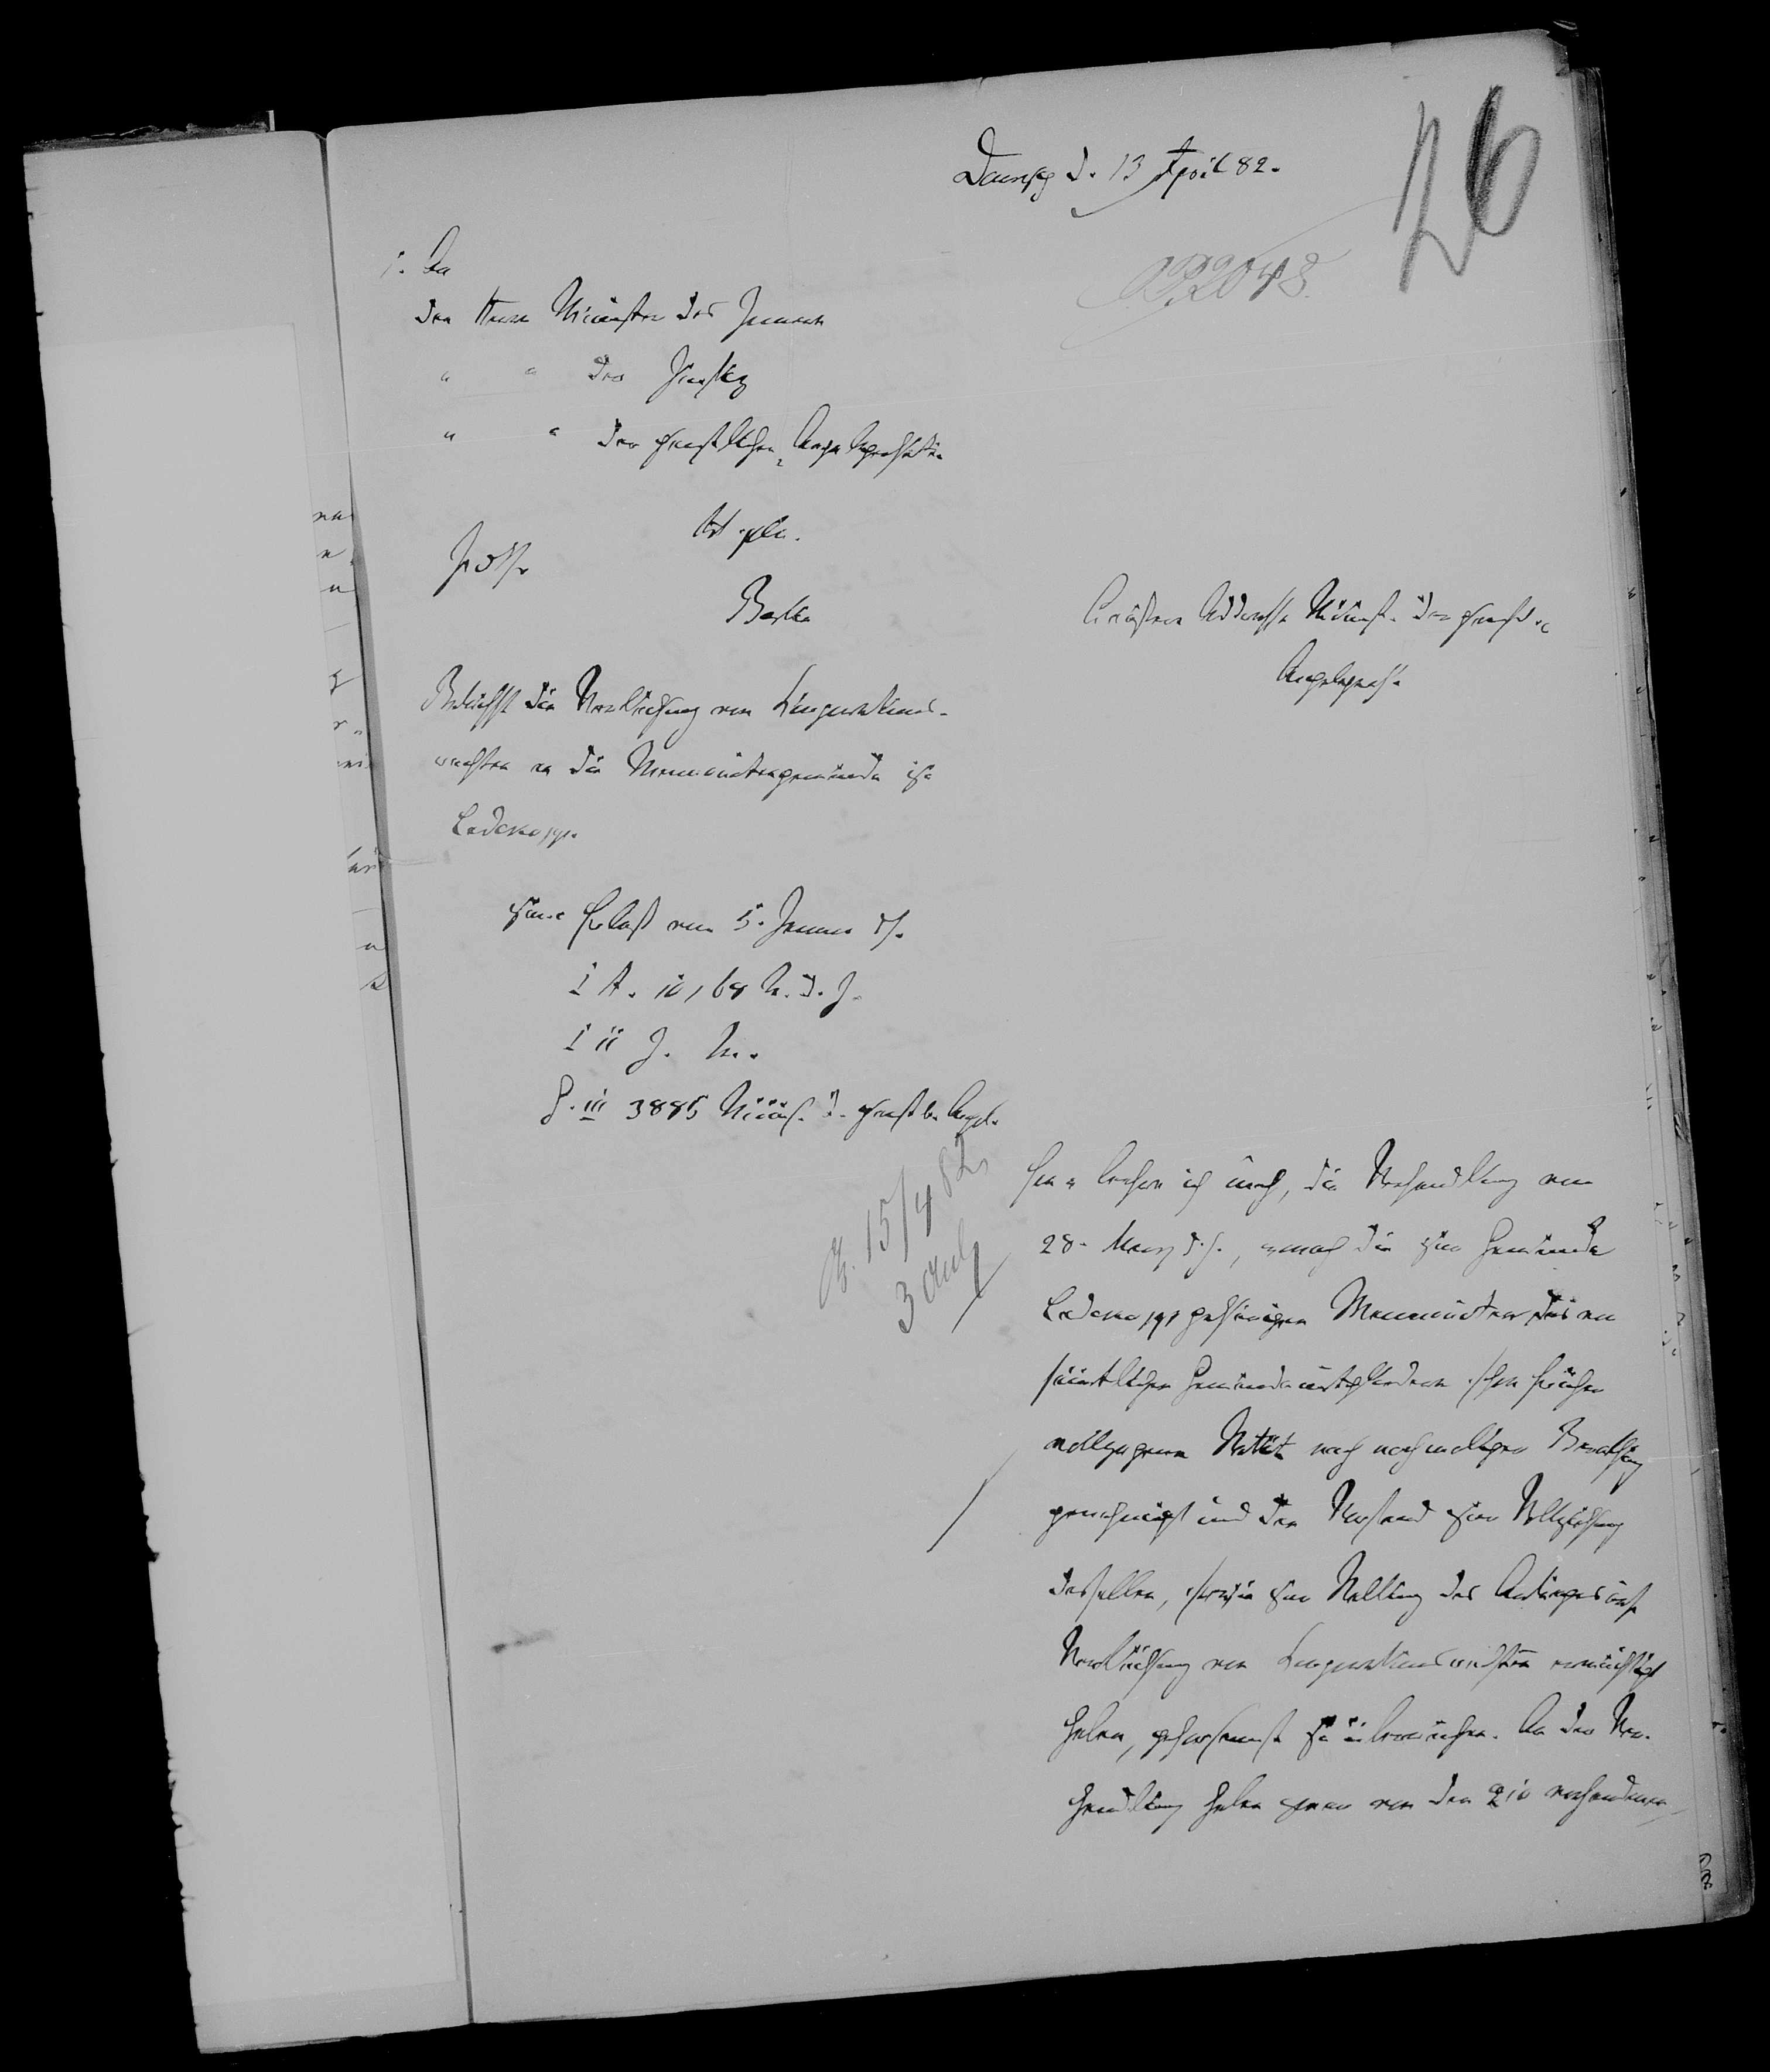 26
Danzig d. 13 April 82.
P 2048.
1. An
den Herrn Minister des Innern
" " der Justiz
" " der geistlichen Angelegenheiten
Berlin
Aeußere Addresse Minist. der geistl.
Angelegenh.
Betrifft die Verleihung von Corporations-
rechten an die Mennonitengemeinde zu
Ladekopp.
Erlaß vom 5. Januar d/.
I A. 10,168 M. d. J.
I II J. M.
G. III 3885 Minist. d. geistl. Angel.
15/4 82
3 Anl
beehre ich mich, die Verhandlung vom
28. März d. J., wonach die zur Gemeinde
Ladekopp gehörigen Mennoniten das von
sämtlichen Gemeindemitgliedern schon früher
vollzogene Statut nach nochmaliger Berathung
genehmigt und den Vorstand zur Vollziehung
desselben, sowie zur Stellung des Antrages auf
Verleihung von Corporationsrechten ermächtigt
haben, gehorsamst zu überreichen. An der Ver-
handlung haben zwar von den 210 vorhandenen